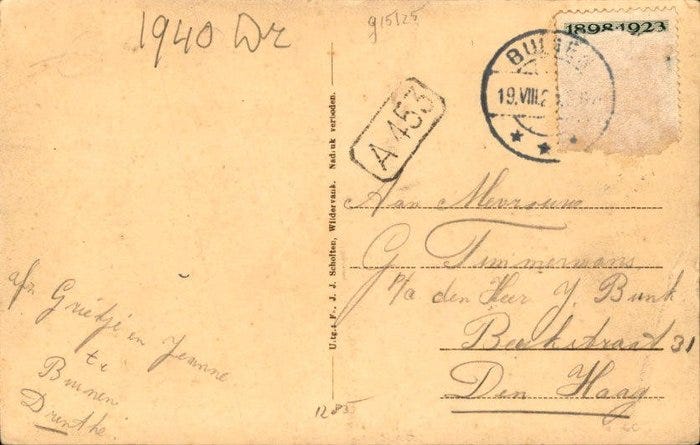 1940 Dr
915125
1898-1923
19.VIII.2
A 453
Uitg. F., J. J. Scholten, Wildervank. Nadruk verboden.
Aan Mevrouw
G Timmermans
p/a den Heer J. Bunk
Beekstraat 31
Den Haag
afz Grietje en Jeanne
te
Buinen
Drenthe.
1285